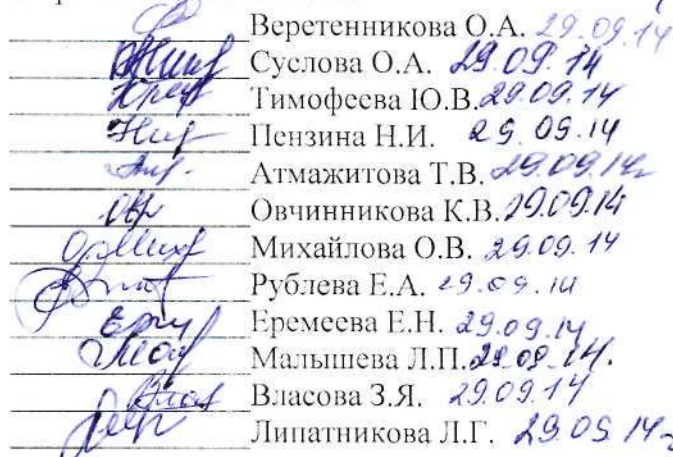 Веретенникова О.А. 29.09.14
Суслова О.А. 29.09.14
Тимофеева Ю.В. 29.09.14
Пензина Н.И. 29.09.14
Атмажитова Т.В. 29.09.14г
Овчинникова К.В. 29.09.14
Михайлова О.В. 29.09.14
Рублева Е.А. 29.09.14
Еремеева Е.Н. 29.09.14
Малышева Л.П. 29.09.14.
Власова З.Я. 29.09.14
Липатникова Л.Г. 29.09.14г